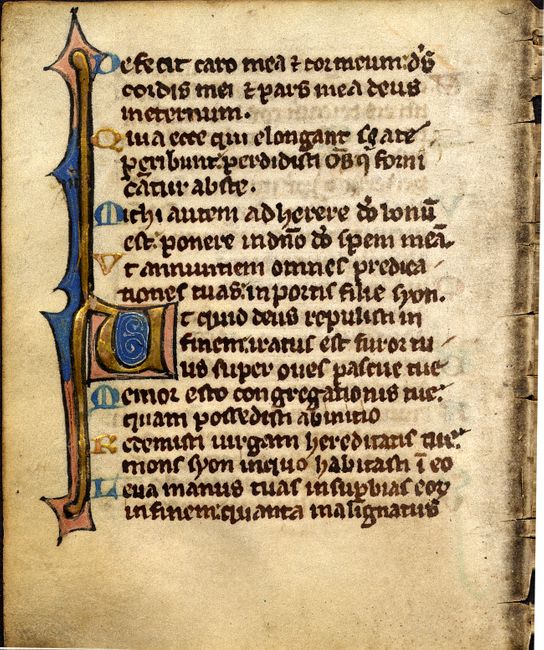 Defecit caro mea ⁊ cor meum: ds̄
cordis mei ⁊ pars mea deus
ineternum.
Quia ecce qui elongant se a te
peribunt: perdidisti om̄s q̄ forni
cāntur abs te.
Michi autem adherere dō bonū
est: ponere in dn̄o dō spem meā.
Vt annuntiem omnes predica
tiones tuas: in portis filie syon.
Vt quid deus repulisti in
finem: iratus est furor tu
us super oues pascue tue
Memor esto congregationis tue:
quam possedisti ab initio
Redemisti uirgam hereditatis tue:
mons syon inquo habitasti ī eo
Leua manus tuas insup̄bias eoꝝ
in finem: quanta malignatus